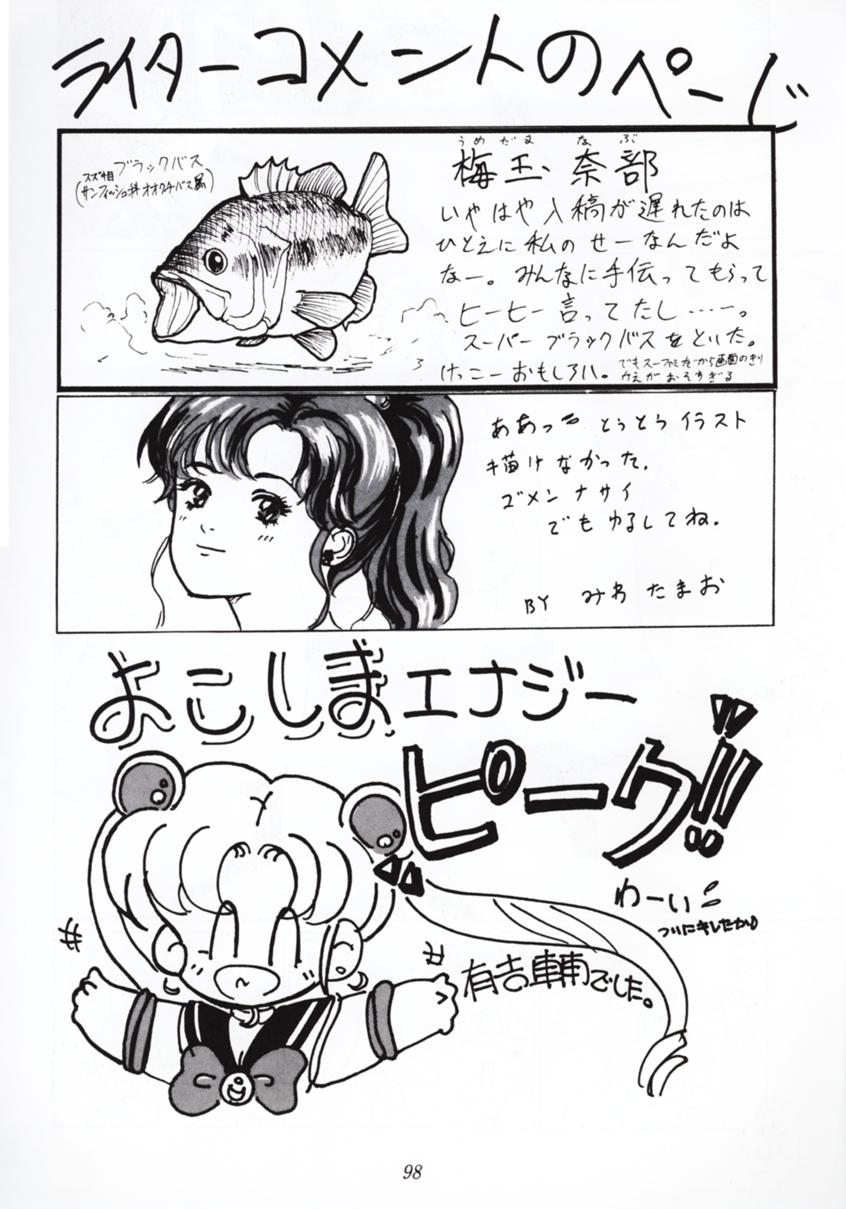 ライターコメントのページ
スズキ目 ブラックバス
(サンフィッシュ科オオクチバス属)
うめだま なぶ
梅玉 奈部
いやはや入稿が遅れたのは
ひとえに私のせーなんだよ
なー。みんなに手伝ってもらって
ヒーヒー言ってたし……。
スーパーブラックバスをといた。
けっこーおもしろい。
でもスーファミだから画面のきり
かえがおそすぎる
ああっ とうとうイラスト
描けなかった。
ゴメンナサイ
でもゆるしてね。
BY みわたまお
よこしまエナジー
ピーク!!
わーい
ついにキレたか
有吉 でした。
98